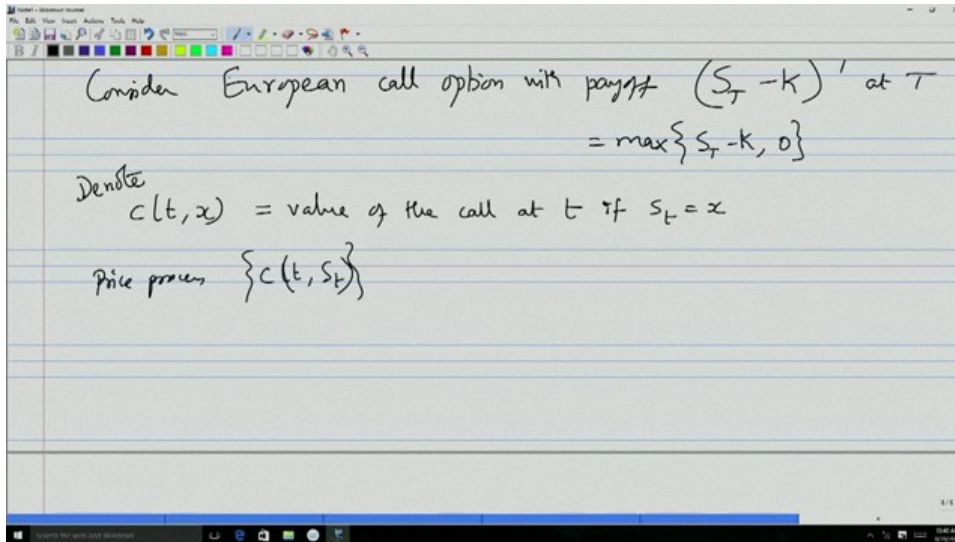 Note1 - Windows Journal
File Edit View Insert Actions Tools Help
B I
Consider European call option with payoff (S_T - K)' at T
= max{S_T - K, 0}
Denote
c(t, x) = value of the call at t if S_t = x
Price process {c(t, S_t)}
Search the web and Windows